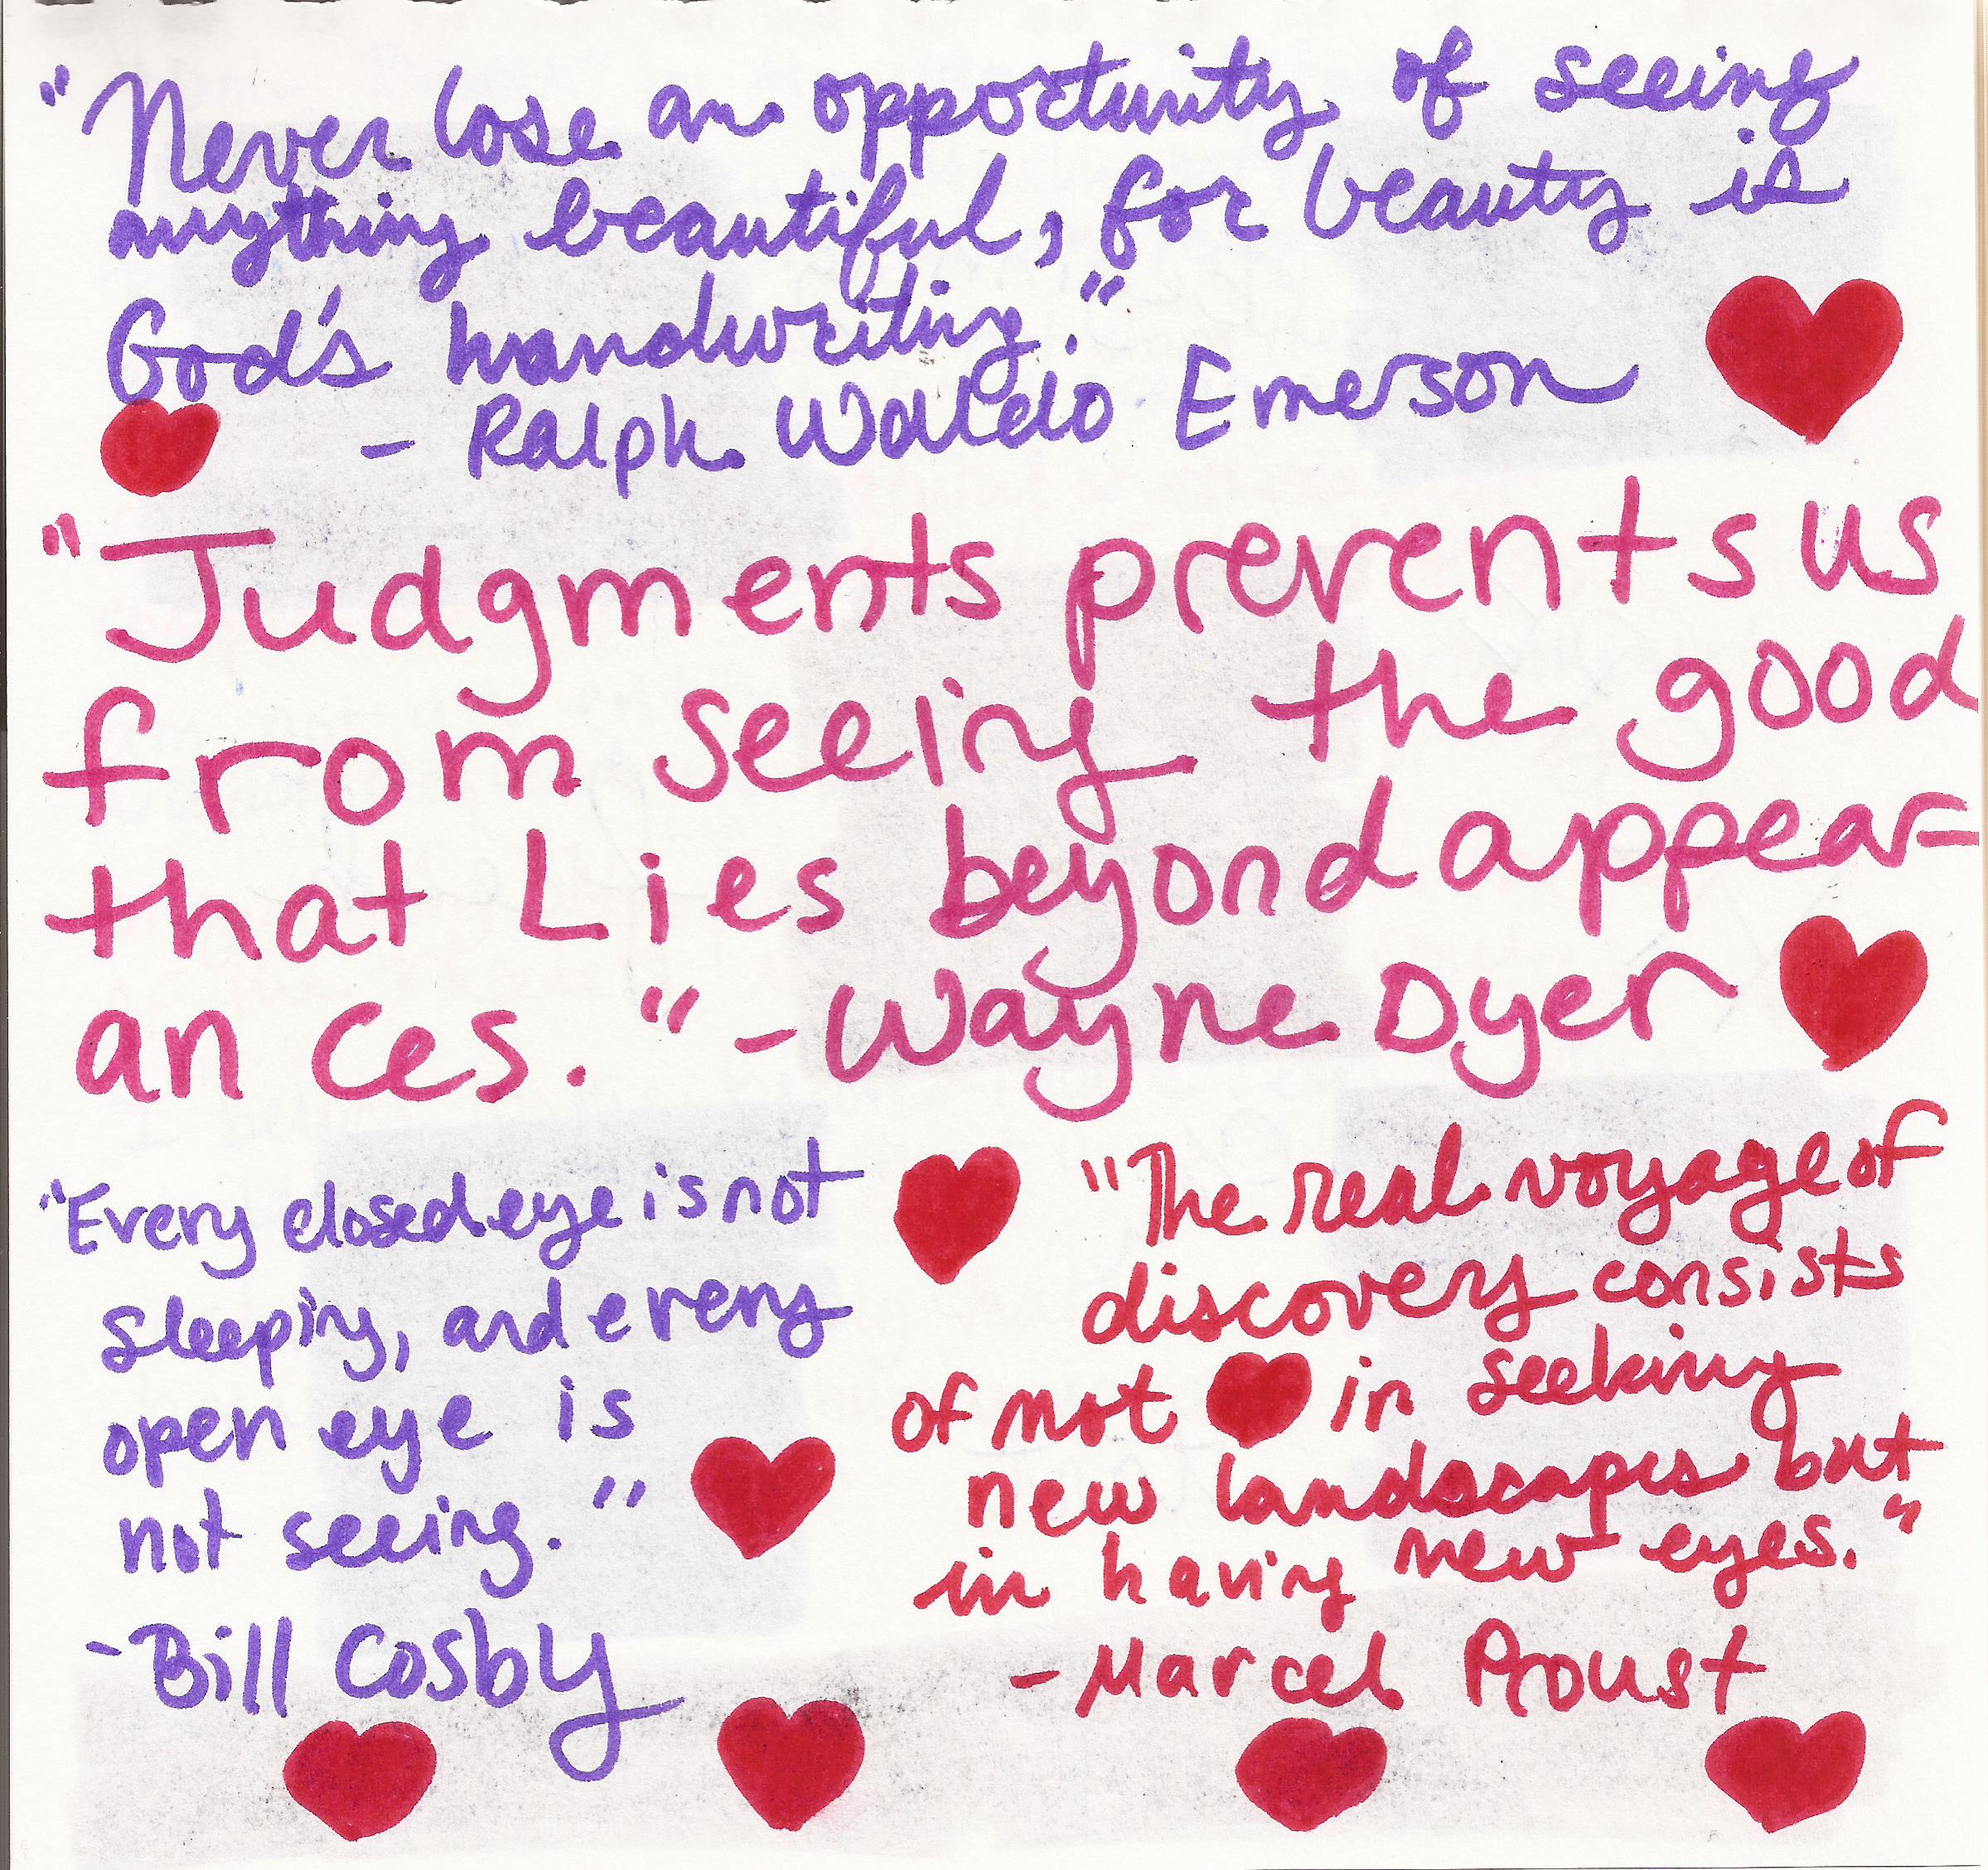 "Never lose an opportunity of seeing
anything beautiful, for beauty is
God's handwriting."
- Ralph Waldo Emerson
"Judgments prevents us
from seeing the good
that Lies beyond appear-
ances." - Wayne Dyer
"Every closed eye is not
sleeping, and every
open eye is
not seeing."
- Bill Cosby
"The real voyage of
discovery consists
of not in seeking
new landscapes but
in having new eyes."
- Marcel Proust